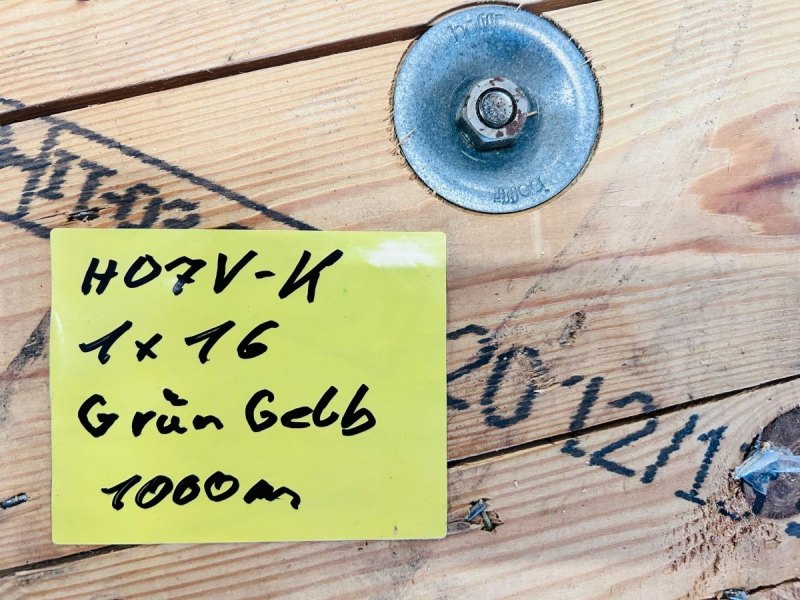 H07V-K
1x16
Grün Gelb
1000m
2012/1